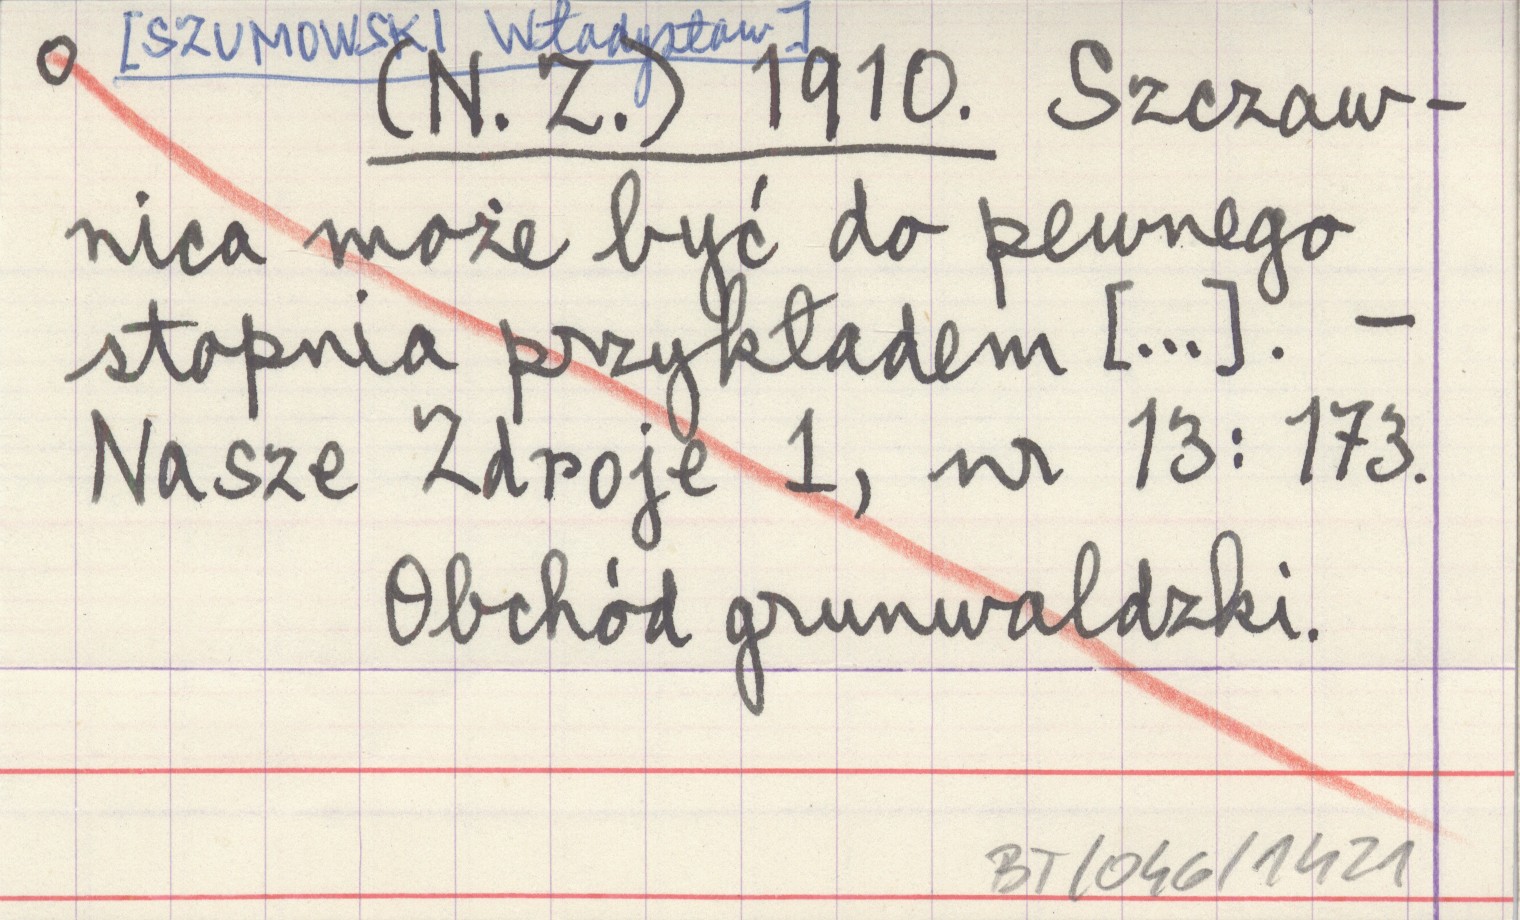 [SZUMOWSKI Władysław]
(N. Z.) 1910. Szczaw-
nica może być do pewnego
stopnia przykładem [...]. –
Nasze Zdroje 1, nr 13: 173.
Obchód grunwaldzki.
BT/046/1421